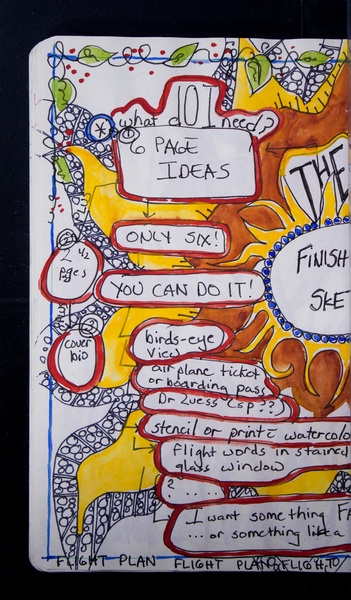 what do I need?
6 PAGE
IDEAS
THE
ONLY SIX!
2 1/2
pages
YOU CAN DO IT!
FINISH
SKE
cover
bio
birds-eye
view
airplane ticket
or boarding pass
Dr Zuess Esp??
stencil or print watercolo
flight words in stained
glass window
2 ....
I want something FA
... or something like a
FLIGHT PLAN FLIGHT PLAN FLIGHT